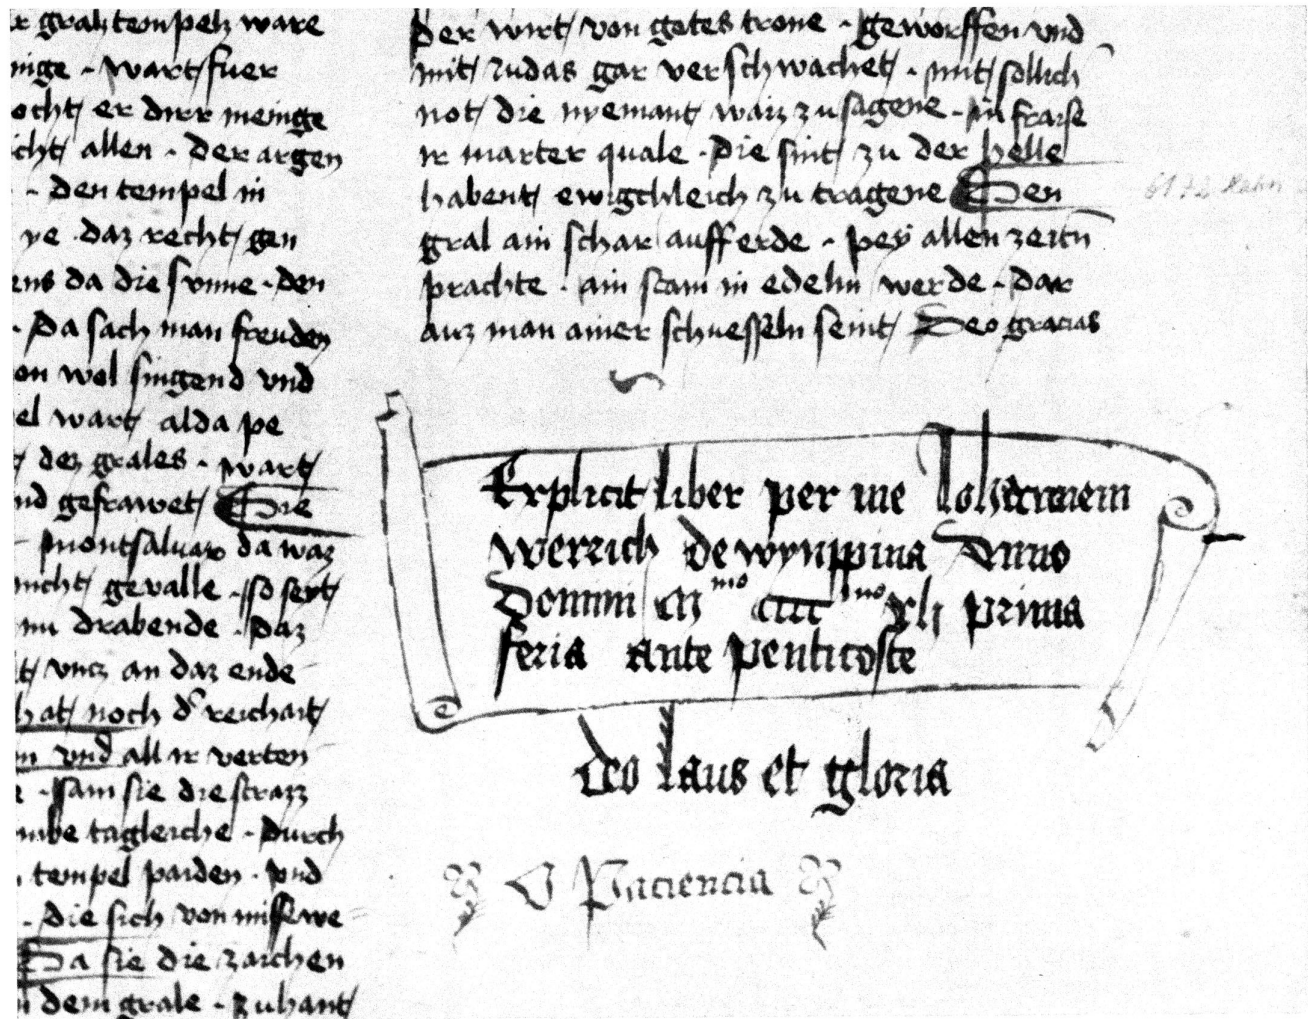 r gralz tempelz ware
nige · wart fuer
ocht er dirr meinge
icht allen · der argen
· den tempel in
ye daz recht gen
ens da die sunne · den
· Da sach man freuden
en wol singend vnd
el wart alda pe
dez grales · wart
nd gefrawet Hie
montsaluatz da waz
nicht gevalle · so seyt
nu drabende · Daz
t vncz an daz ende
hat noch der reichait
n vnd all ir verten
· sam sie die strazz
mbe tagleiche · Durch
tempel paiden · vnd
· die sich von misse we
Da sie die zaichen
n dem grale · zuhant
Der wirt von gotes trone · geworffen vnd
mit Judas gar verschwachet · mit sollich
not die nyemant waiz zu sagene · in fraise
ir marter quale · Die sint zu der helle
habent ewigchleich zu tragene Den
gral ain schar auff erde · pey allen zeitn
prachte · ain stain in edelm werde · dar
auz man ainer schuesseln seint Deo gracias
Explicit liber per me Johannem
werrich de wynppina Anno
Domini M mo cccc mo xli prima
feria ante penticoste
deo laus et gloria
O Paciencia